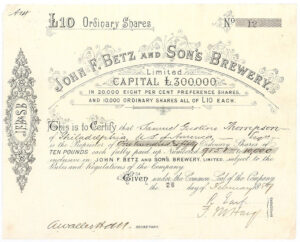 £10 Ordinary Shares
No 12
JOHN F. BETZ AND SON'S BREWERY,
Limited
CAPITAL £300,000
IN 20,000 EIGHT PER CENT PREFERENCE SHARES,
AND 10,000 ORDINARY SHARES ALL OF £10 EACH.
This is to Certify that Samuel Gustine Thompson
of Philadelphia
is the Proprietor of One hundred & fifty Ordinary Shares of
TEN POUNDS each fully paid up Numbered
inclusive in JOHN F. BETZ AND SON'S BREWERY, LIMITED, subject to the
Rules and Regulations of the Company.
Given under the Common Seal of the Company
the 26 day of February
SECRETARY.